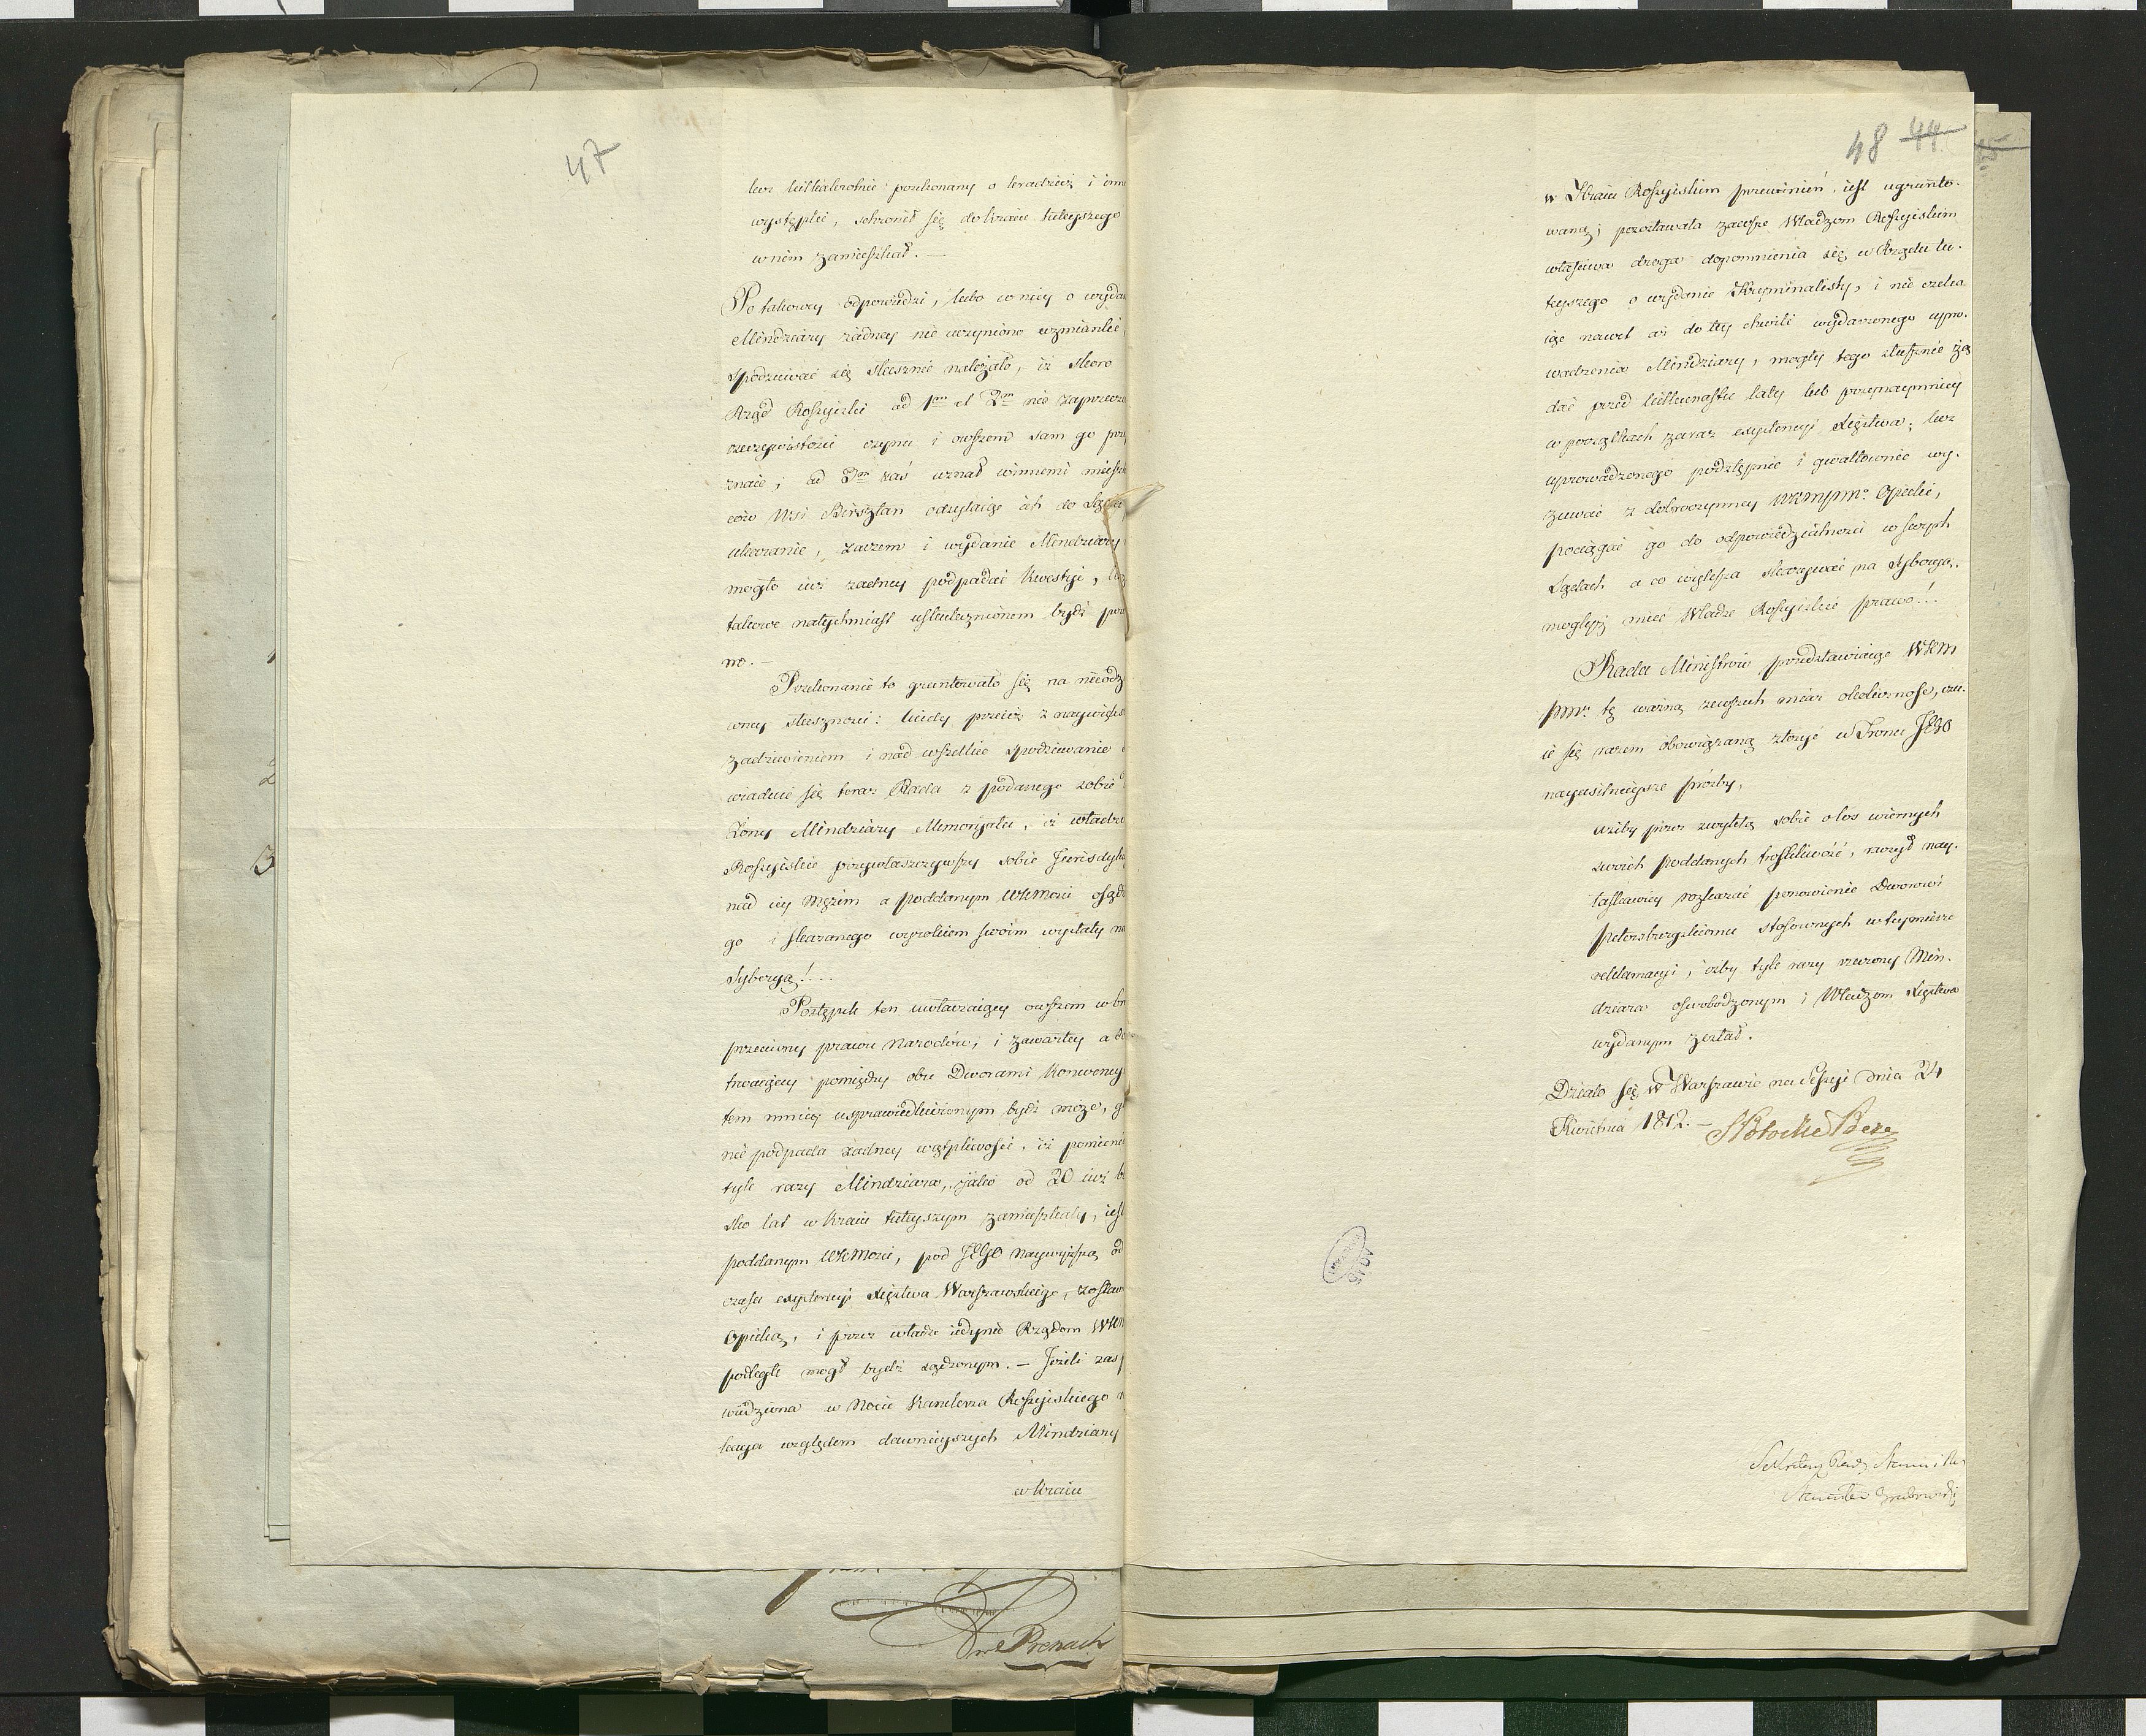 47
lecz kilkakrotnie przekonany o kradzież i inne
występki, schronił się do kraiu tuteyszego
w nim zamieszkał. —
Po takowey odpowiedzi, lubo w niey o wyda
Mindziary żadney nie uczyniono wzmianki
spodziewać się słusznie należało, iż skoro
Rząd Rossyiski ad 1m et 2m nie zaprzecza
rzeczywistości czynu i owszem sam go przy
znaie; ad 3m zaś uznał winnemi mieszk
ców Wsi Birsztan odsyłaiąc ich do Sądu
ukaranie, zaczem i wydanie Mindziary
mogło iuż żadney podpadać kwestyi, lecz
takowe natychmiast uskutecznionem bydź pow
no. —
Przekonanie to gruntowało się na nieodz
wney słuszności: kiedy przecież z naywiększ
zadziwieniem i nad wszelkie spodziewanie
wiaduie się teraz Rada z podanego sobie
Żony Mindziary Memoryału, iż władze
Rossyiskie przywłaszczywszy sobie Jurisdyk
nad iey Mężem a poddanym WKMości osądz
go i skazanego wyrokiem swoim wysłały na
Syberyą!...
Postępek ten uwłaczaiący owszem wbr
przeciwny prawu Narodów, i zawartey a do
trwaiącey pomiędzy obu Dworami Konwency
tem mniey usprawiedliwionym bydź może, g
nie podpada żadney wątpliwości, iż pomieni
tyle razy Mindziara, iako od 20 iuż bl
sko lat w kraiu tuteyszym zamieszkały, iest
poddanym WKMości, pod JEGO Naywyższą od
czasu exystencyi Xięstwa Warszawskiego, zostaw
Opieką, i przez władze iedynie Rządom WKM
podległe mógł bydź sądzonym. — Jeżeli zaś p
wiedziona w Nocie Kanclerza Rossyiskiego
kacya względem dawnieyszych Mindziary
w Kraiu
Prenach
48 44
w Kraiu Rossyiskim przewinień iest ugrunto-
waną; pozostawała zawsze Władzom Rossyiskim
właściwa droga dopomnienia się u Rządu tu-
teyszego o wydanie Kryminalisty, i nie czeka
iąc nawet aż do tey chwili wydarzonego upro-
wadzenia Mindziary, mogły tego słusznie żą
dać przed kilkunastu laty lub przynaymniey
w początkach zaraz exystencyi Xięstwa; lecz
uprowadzonego podstępnie i gwałtownie wy-
zuwać z dobroczynney WKMPMo. Opieki,
pociągać go do odpowiedzialności w swych
Sądach a co większa skazywać na Syberyą,
mogłyż mieć Władze Rossyiskie prawo!...
Rada Ministrów przedstawiaiąc WKM
PMu. tę ważną zewszech miar okoliczność, czu-
ie się razem obowiązaną złożyć u Tronu JEGO
nayusilnieysze prośby,
ażeby przez zwykłą sobie o los wiernych
swoich poddanych troskliwość, raczył nay-
łaskawiey rozkazać ponowienie Dworowi
Petersburgskiemu stosownych w teymierze
reklamacyi, iżby tyle razy rzeczony Min-
dziara oswobodzonym i Władzom Xięstwa
wydanym został.
Działo się w Warszawie na Sessyi dnia 24
Kwietnia 1812. —